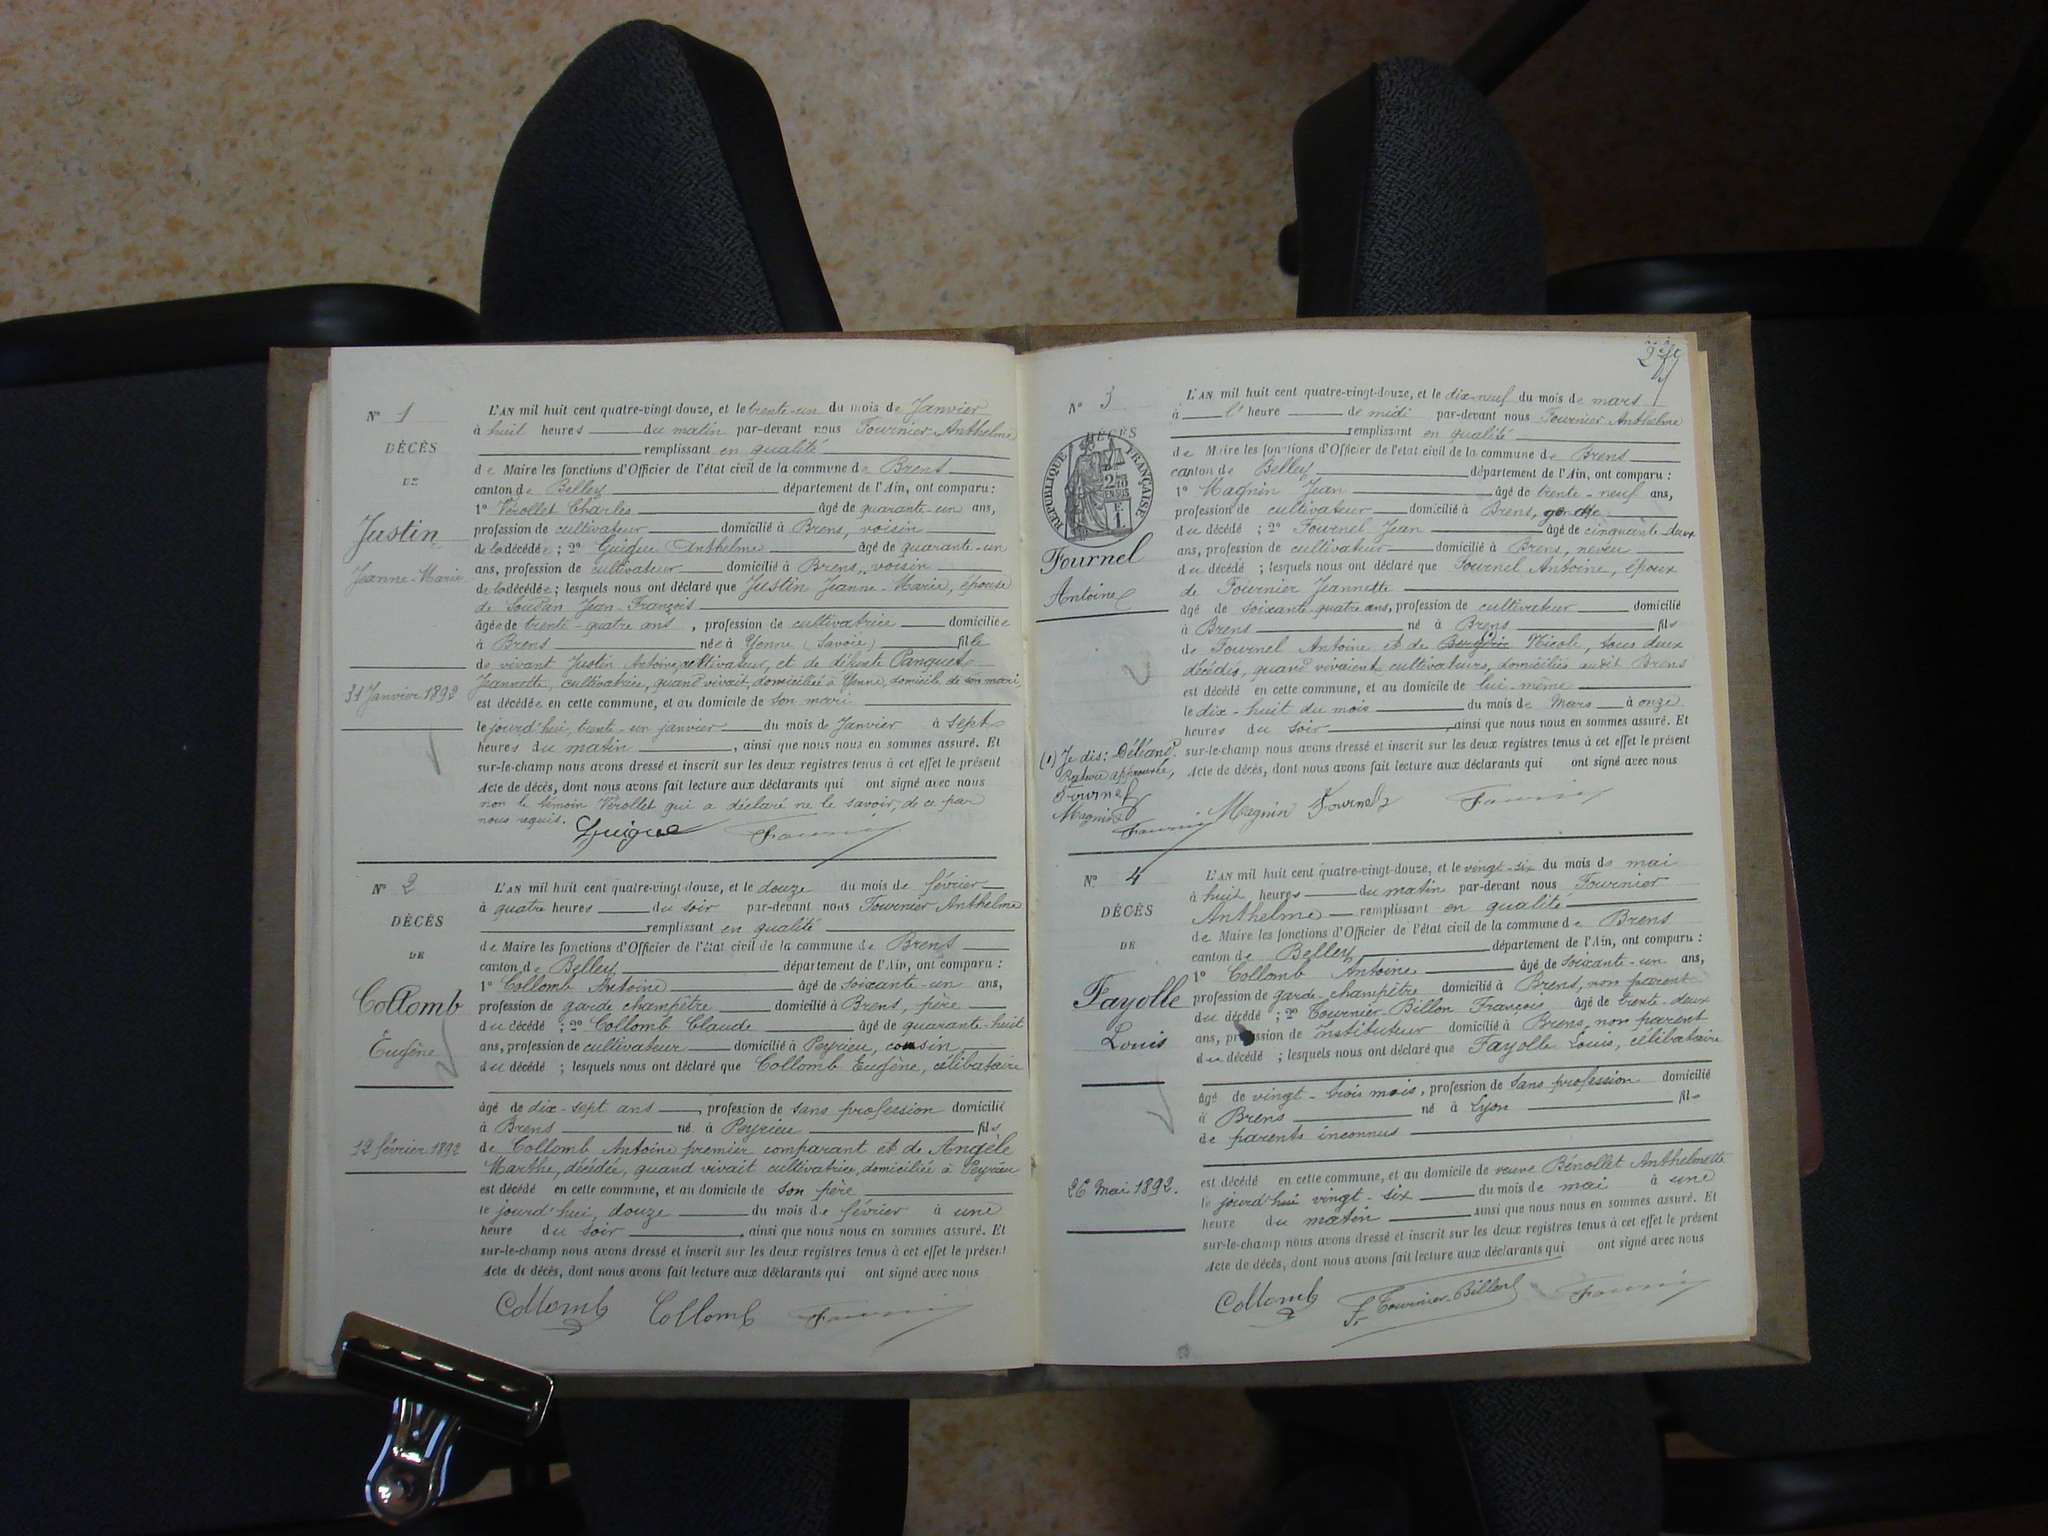 N° 1
DÉCÈS
DE
Justin
Jeanne-Marie
31 Janvier 1892
L'AN mil huit cent quatre-vingt-douze, et le trente-un du mois de Janvier
à huit heures du matin par-devant nous Fournier Anthelme
remplissant en qualité
de Maire les fonctions d'Officier de l'état civil de la commune de Brens
canton de Belley département de l'Ain, ont comparu :
1° Vérollet Charles âgé de quarante-un ans,
profession de cultivateur domicilié à Brens, voisin
de la décédée ; 2° Guigue Anthelme âgé de quarante-un
ans, profession de cultivateur domicilié à Brens, voisin
de la décédée ; lesquels nous ont déclaré que Justin Jeanne-Marie, épouse
de Soudan Jean-François
âgée de trente-quatre ans, profession de cultivatrice domiciliée
à Brens née à Yenne (Savoie) fille
de vivant Justin Antoine, cultivateur, et de défunte Panguet
Jeannette, cultivatrice, quand vivait, domiciliée à Yenne, domicile de son mari,
est décédée en cette commune, et au domicile de son mari
le jourd'hui, trente-un janvier du mois de Janvier à sept
heures du matin, ainsi que nous nous en sommes assuré. Et
sur-le-champ nous avons dressé et inscrit sur les deux registres tenus à cet effet le présent
Acte de décès, dont nous avons fait lecture aux déclarants qui ont signé avec nous
non le témoin Vérollet qui a déclaré ne le savoir, de ce par
nous requis.
Guigue Fournier
N° 2
DÉCÈS
DE
Collomb
Eugène
12 février 1892
L'AN mil huit cent quatre-vingt-douze, et le douze du mois de février
à quatre heures du soir par-devant nous Fournier Anthelme
remplissant en qualité
de Maire les fonctions d'Officier de l'état civil de la commune de Brens
canton de Belley département de l'Ain, ont comparu :
1° Collomb Antoine âgé de soixante-un ans,
profession de garde champêtre domicilié à Brens, père
du décédé ; 2° Collomb Claude âgé de quarante-huit
ans, profession de cultivateur domicilié à Peyrieu, cousin
du décédé ; lesquels nous ont déclaré que Collomb Eugène, célibataire
âgé de dix-sept ans, profession de sans profession domicilié
à Brens né à Peyrieu fils
de Collomb Antoine premier comparant et de Angèle
Marthe, décédée, quand vivait cultivatrice, domiciliée à Peyrieu
est décédé en cette commune, et au domicile de son père
le jourd'hui, douze du mois de février à une
heure du soir, ainsi que nous nous en sommes assuré. Et
sur-le-champ nous avons dressé et inscrit sur les deux registres tenus à cet effet le présent
Acte de décès, dont nous avons fait lecture aux déclarants qui ont signé avec nous
Collomb Collomb Fournier
N° 3
DÉCÈS
RÉPUBLIQUE FRANÇAISE
2/10 EN SUS
F. 1.
Fournel
Antoine
(1) Je dis:
Rature approuvée,
Fournel
Magnin
Fournier
L'AN mil huit cent quatre-vingt-douze, et le dix-neuf du mois de mars
à l' heure de midi par-devant nous Fournier Anthelme
remplissant en qualité
de Maire les fonctions d'Officier de l'état civil de la commune de Brens
canton de Belley département de l'Ain, ont comparu :
1° Magnin Jean âgé de trente-neuf ans,
profession de cultivateur domicilié à Brens, gendre
du décédé ; 2° Fournel Jean âgé de cinquante-deux
ans, profession de cultivateur domicilié à Brens, neveu
du décédé ; lesquels nous ont déclaré que Fournel Antoine, époux
de Fournier Jeannette
âgé de soixante-quatre ans, profession de cultivateur domicilié
à Brens né à Brens fils
de Fournel Antoine et de Nicole, tous deux
décédés, quand vivaient cultivateurs, domiciliés audit Brens
est décédé en cette commune, et au domicile de lui-même
le dix-huit du mois du mois de Mars à onze
heures du soir, ainsi que nous nous en sommes assuré. Et
sur-le-champ nous avons dressé et inscrit sur les deux registres tenus à cet effet le présent
Acte de décès, dont nous avons fait lecture aux déclarants qui ont signé avec nous
Magnin Fournel Fournier
N° 4
DÉCÈS
DE
Fayolle
Louis
26 Mai 1892.
L'AN mil huit cent quatre-vingt-douze, et le vingt-six du mois de mai
à huit heures du matin par-devant nous Fournier
Anthelme remplissant en qualité
de Maire les fonctions d'Officier de l'état civil de la commune de Brens
canton de Belley, département de l'Ain, ont comparu :
1° Collomb Antoine âgé de soixante-un ans,
profession de garde-champêtre domicilié à Brens, non parent
du décédé ; 2° Fournier-Billon François âgé de trente-deux
ans, profession de Instituteur domicilié à Brens, non parent
du décédé ; lesquels nous ont déclaré que Fayolle Louis, célibataire
âgé de vingt-trois mois, profession de sans profession domicilié
à Brens né à Lyon fils
de parents inconnus
est décédé en cette commune, et au domicile de veuve Bénollet Anthelmette
le jourd'hui vingt-six du mois de mai à une
heure du matin ainsi que nous nous en sommes assuré. Et
sur-le-champ nous avons dressé et inscrit sur les deux registres tenus à cet effet le présent
Acte de décès, dont nous avons fait lecture aux déclarants qui ont signé avec nous
Collomb Fr Fournier-Billon Fournier